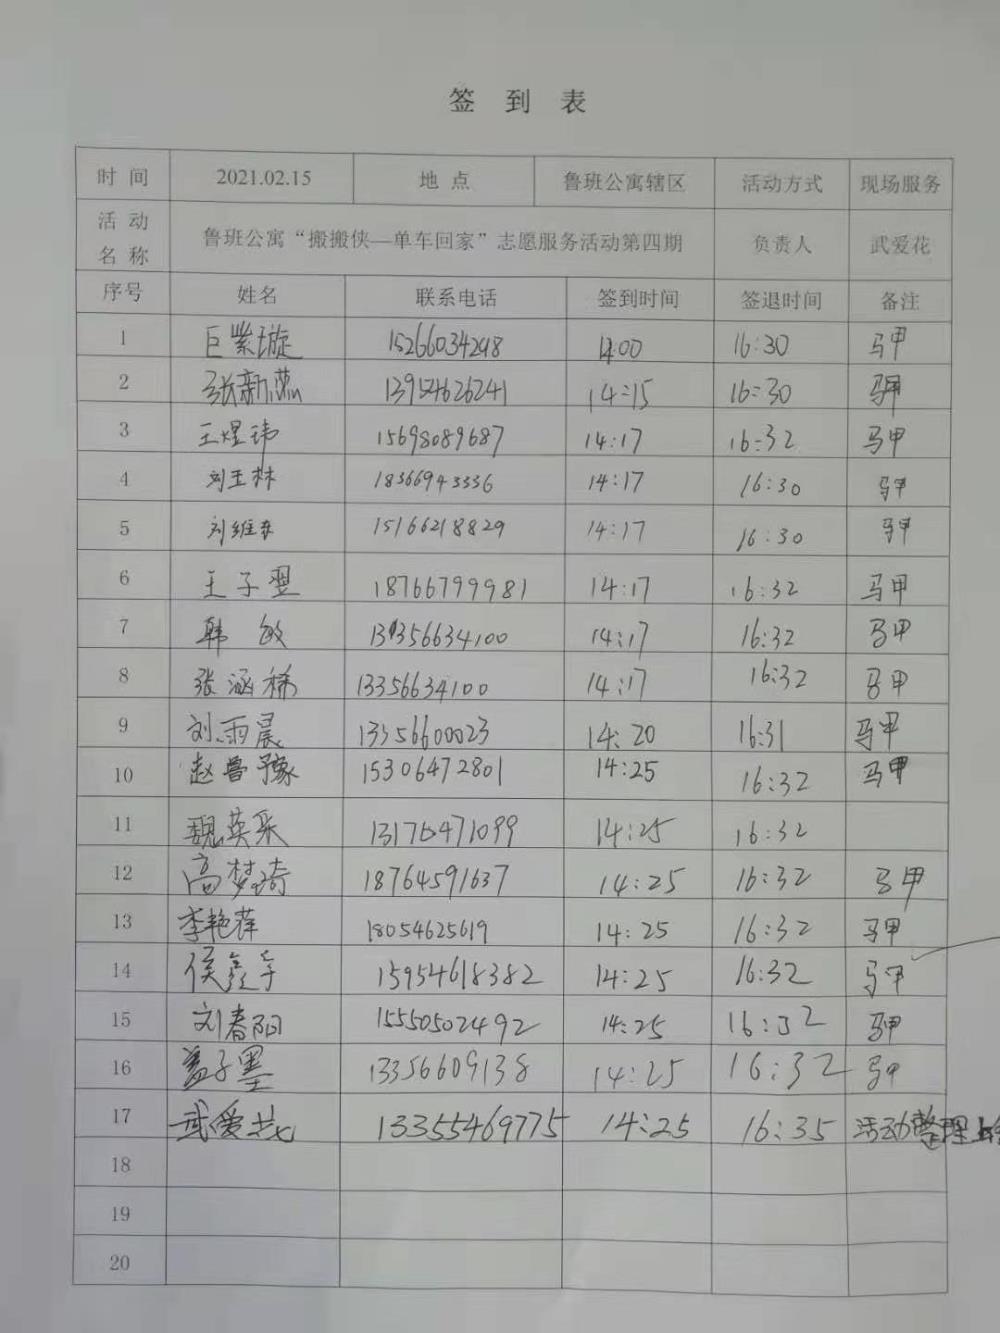 签 到 表
时 间 2021.02.15 地 点 鲁班公寓辖区 活动方式 现场服务
活 动 名 称 鲁班公寓“搬搬侠—单车回家”志愿服务活动第四期 负责人 武爱花
序号 姓名 联系电话 签到时间 签退时间 备注
1 巨紫璇 15266034298 14:00 16:30 马甲
2 张新燕 13954626241 14:15 16:30 马甲
3 王煜玮 15698089687 14:17 16:32 马甲
4 刘玉林 18366943336 14:17 16:30 马甲
5 刘维东 15166218829 14:17 16:30 马甲
6 王子翌 18766799981 14:17 16:32 马甲
7 韩 敏 13356634100 14:17 16:32 马甲
8 张涵稀 13356634100 14:17 16:32 马甲
9 刘雨晨 13356600023 14:20 16:31 马甲
10 赵鲁豫 15306472801 14:25 16:32 马甲
11 魏英采 14:25 16:32
12 高梦琦 18764591637 14:25 16:32 马甲
13 李艳萍 18054625619 14:25 16:32 马甲
14 侯鑫宇 15954618382 14:25 16:32 马甲
15 刘春阳 15550502492 14:25 16:32 马甲
16 盖子墨 13356609138 14:25 16:32 马甲
17 武爱花 13355469775 14:25 16:35 活动整理上
18
19
20